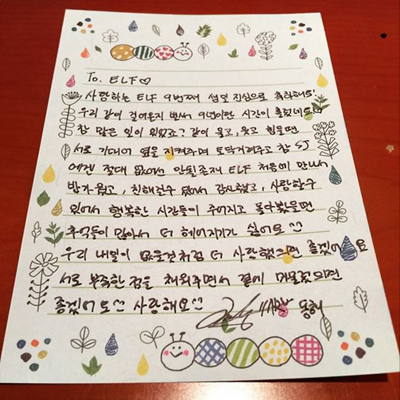 To. ELF♡
사랑하는 ELF 9번째 생일 진심으로 축하해요!
우리 같이 걸어온지 벌써 9년이란 시간이 흘렀네요
참 많은 일이 있었죠? 같이 울고, 웃고 힘들면
서로 기대며 옆을 지켜주며 토닥거려주고 참 SJ
에겐 절대 없어서 안될존재 ELF 처음에 만나서
반가웠고, 친해진후 있어서 감사했고, 사랑한후
있어서 행복한 시간들이 주어지고 돌아봤을땐
추억들이 많아서 더 헤어지기가 싫어요
우리 내일이 없을것처럼 더 사랑했으면 좋겠어요
서로 부족한 점을 채워주면서 곁에 머물렀으면
좋겠어요 사랑해요
동해